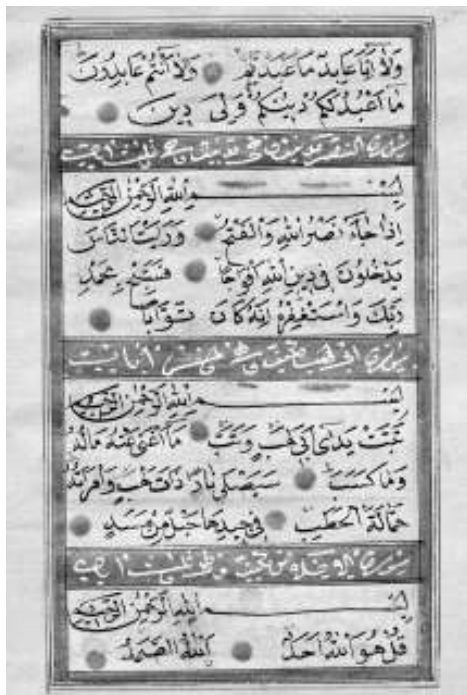 وَلَا أَنَا عَابِدٌ مَا عَبَدْتُمْ وَلَا أَنْتُمْ عَابِدُونَ
مَا أَعْبُدُ لَكُمْ دِينُكُمْ وَلِيَ دِينِ
سورة النصر
بِسْمِ اللهِ الرَّحْمٰنِ الرَّحِيمِ
إِذَا جَاءَ نَصْرُ اللهِ وَالْفَتْحُ وَرَأَيْتَ النَّاسَ
يَدْخُلُونَ فِي دِينِ اللهِ أَفْوَاجًا فَسَبِّحْ بِحَمْدِ
رَبِّكَ وَاسْتَغْفِرْهُ إِنَّهُ كَانَ تَوَّابًا
سورة
بِسْمِ اللهِ الرَّحْمٰنِ الرَّحِيمِ
تَبَّتْ يَدَا أَبِي لَهَبٍ وَتَبَّ مَا أَغْنَى عَنْهُ مَالُهُ
وَمَا كَسَبَ سَيَصْلَى نَارًا ذَاتَ لَهَبٍ وَامْرَأَتُهُ
حَمَّالَةَ الْحَطَبِ فِي جِيدِهَا حَبْلٌ مِنْ مَسَدٍ
سورة
بِسْمِ اللهِ الرَّحْمٰنِ الرَّحِيمِ
قُلْ هُوَ اللهُ أَحَدٌ اَللهُ الصَّمَدُ